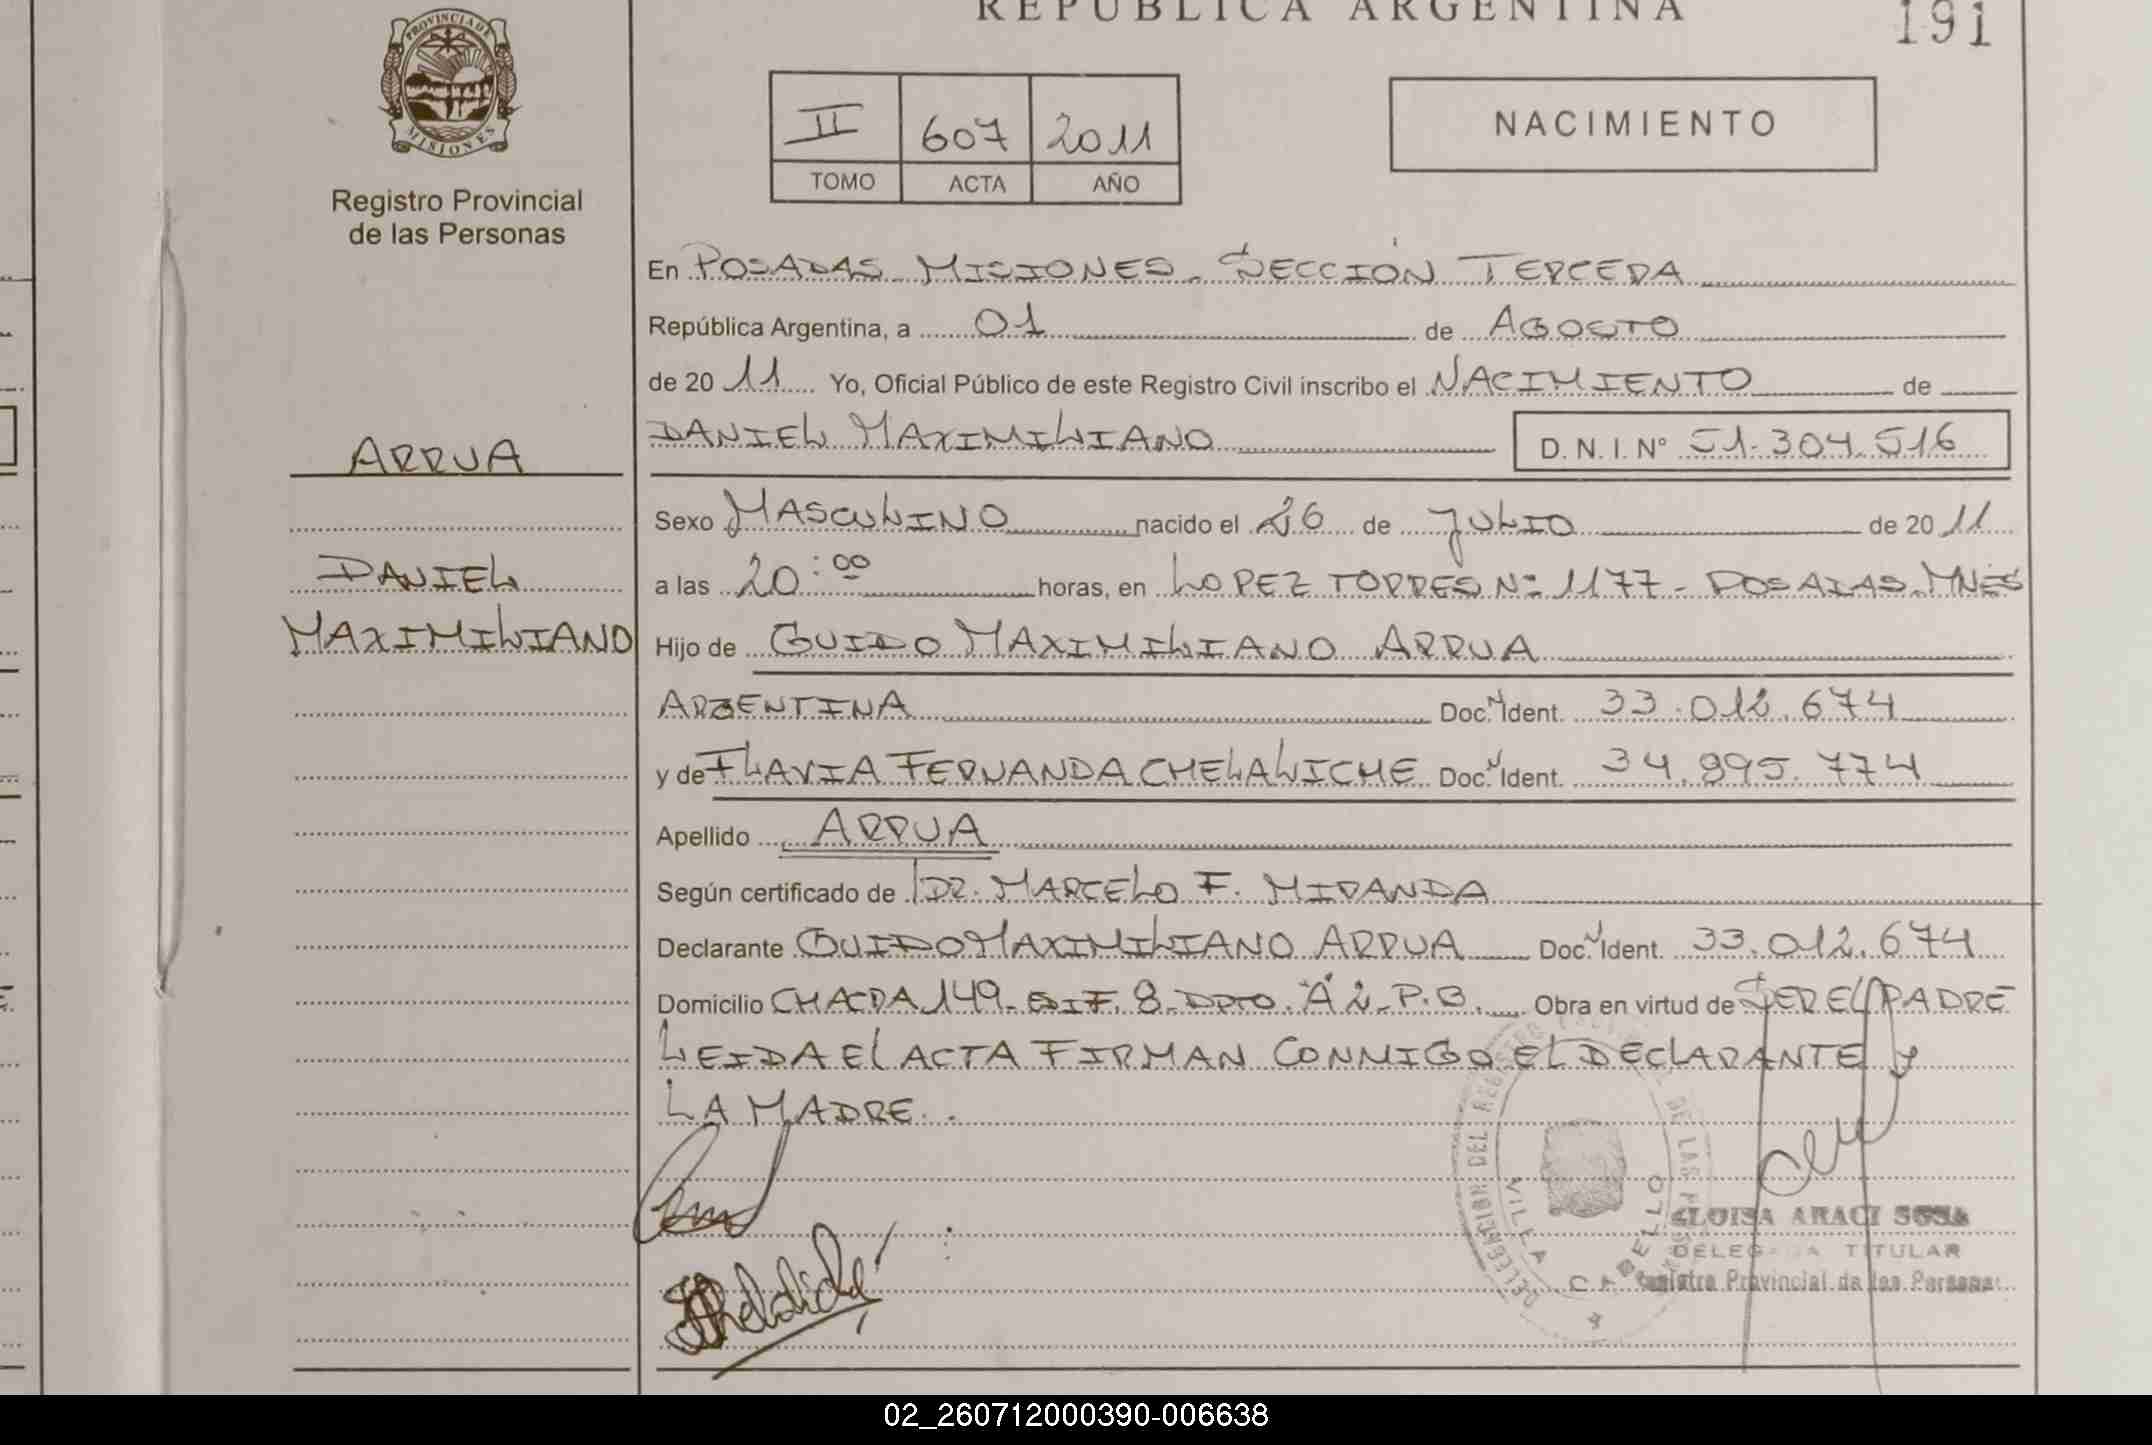 REPUBLICA ARGENTINA
191
PROVINCIA DE MISIONES
Registro Provincial
de las Personas
II 607 2011
TOMO ACTA AÑO
NACIMIENTO
En POSADAS MISIONES - SECCIÓN TERCERA
República Argentina, a 01 de AGOSTO
de 20 11 Yo, Oficial Público de este Registro Civil inscribo el NACIMIENTO de
DANIEL MAXIMILIANO D. N. I. Nº 51.304.516
ARRUA
DANIEL
MAXIMILIANO
Sexo MASCULINO nacido el 26 de JULIO de 20 11
a las 20:00 horas, en LOPEZ TORRES Nº 1177 - POSADAS. MNES
Hijo de GUIDO MAXIMILIANO ARRUA
ARGENTINA Doc. N Ident. 33.012.674
y de FLAVIA FERNANDA CHELALICHE Doc. N Ident. 34.995.774
Apellido ARRUA
Según certificado de DR. MARCELO F. MIRANDA
Declarante GUIDO MAXIMILIANO ARRUA Doc. N Ident. 33.012.674
Domicilio CHACRA 149 - EDIF. 8 - DPTO. "A" 2 - P.B. Obra en virtud de SER EL PADRE
LEIDA EL ACTA FIRMAN CONMIGO EL DECLARANTE Y
LA MADRE.
DELEGACION DEL REGISTRO DE LAS
VILLA CABELLO
ELOISA ARACI SOSA
DELEGADA TITULAR
Registro Provincial de las Personas
02_260712000390-006638